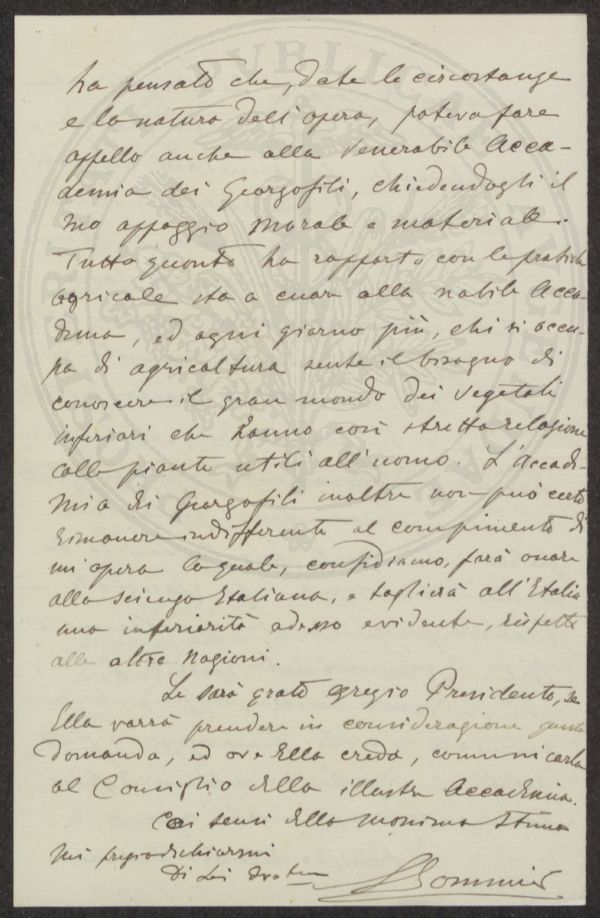 ha pensato che, date le circostanze
e la natura dell'opera, poteva fare
appello anche alla Venerabile Acca-
demia dei Georgofili, chiedendogli il
suo appoggio morale e materiale.
Tutto quanto ha rapporto con le pratiche
agricole sta a cuore alla nobile Acca-
demia, ed ogni giorno più, chi si occu-
pa di agricoltura sente il bisogno di
conoscere il gran mondo dei vegetali
inferiori che hanno così stretta relazione
colle piante utili all'uomo. L'Accade-
mia dei Georgofili inoltre non può certo
rimanere indifferente al compimento di
un'opera la quale, confidiamo, farà onore
alla scienza Italiana, e toglierà all'Italia
una inferiorità adesso evidente, rispetto
alle altre Nazioni.
Le sarò grato Egregio Presidente, se
Ella vorrà prendere in considerazione questa
domanda, ed ove Ella creda, comunicarla
al Consiglio della illustre Accademia.
Coi sensi della massima stima
mi pregio dichiararmi
Di Lei
Sommier